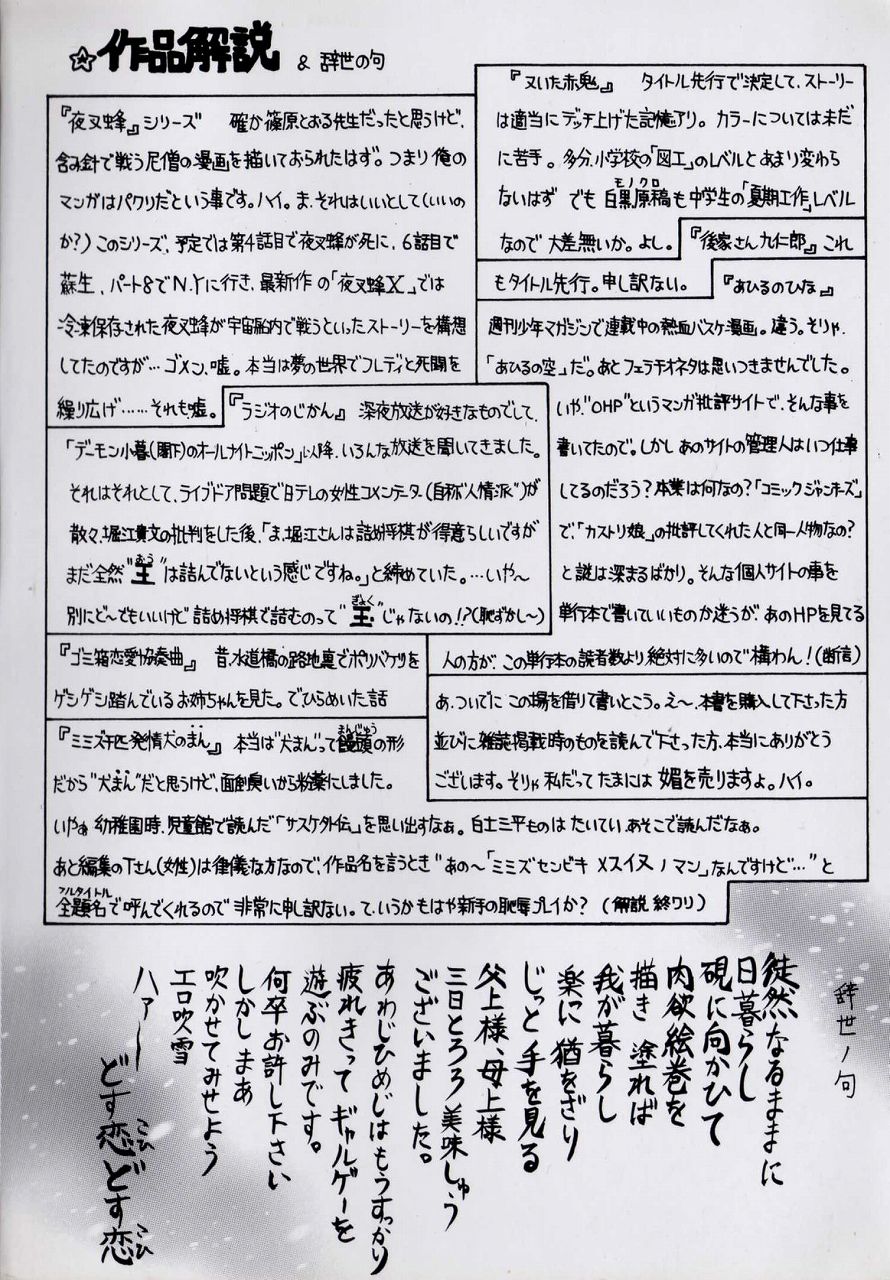 ☆作品解説 & 辞世の句
『夜叉蜂』シリーズ 確か篠原とおる先生だったと思うけど、
含み針で戦う尼僧の漫画を描いておられたはず。つまり俺の
マンガはパクリだという事です。ハイ。ま、それはいいとして(いいの
か?)このシリーズ、予定では第4話目で夜叉蜂が死に、6話目で
蘇生、パート8でN.Yに行き、最新作の「夜叉蜂X」では
冷凍保存された夜叉蜂が宇宙船内で戦うといったストーリーを構想
してたのですが…ゴメン、嘘。本当は夢の世界でフレディと死闘を
繰り広げ……それも嘘。
『ラジオのじかん』 深夜放送が好きなものでして、
「デーモン小暮(閣下)のオールナイトニッポン」以降、いろんな放送を聞いてきました。
それはそれとして、ライブドア問題で日テレの女性コメンテーター(自称"人情派")が
散々、堀江貴文の批判をした後、「ま、堀江さんは詰め将棋が得意らしいですが
まだ全然"王"は詰んでないという感じですね。」と締めていた。…いや〜
おう
別にど〜でもいいけど詰め将棋で詰むのって"玉"じゃないの!?(恥ずかし〜)
ぎょく
『ゴミ箱恋愛協奏曲』 昔、水道橋の路地裏でポリバケツを
ゲシゲシ踏んでいるお姉ちゃんを見た。でひらめいた話
『ミミズ千匹発情犬のまん』 本当は"犬まん"って饅頭の形
まんじゅう
だから"犬まん"だと思うけど、面倒臭いから粉薬にしました。
いやぁ幼稚園時、児童館で読んだ「サスケ外伝」を思い出すなぁ。白土三平ものはたいていあそこで読んだなぁ。
あと編集のTさん(女性)は律儀な方なので、作品名を言うとき"あの〜「ミミズセンビキ メスイヌノマン」なんですけど…"と
フルタイトル
全題名で呼んでくれるので非常に申し訳ない。て、いうかもはや新手の恥辱プレイか? (解説 終ワリ)
『又いた赤鬼』 タイトル先行で決定して、ストーリー
は適当にデッチ上げた記憶アリ。カラーについては未だ
に苦手。多分、小学校の「図工」のレベルとあまり変わら
ないはず でも白黒原稿も中学生の「夏期工作」レベル
モノクロ
なので大差無いか。よし。
『後家さん九仁郎』これ
もタイトル先行。申し訳ない。
『あひるのひな』
週刊少年マガジンで連載中の熱血バスケ漫画。違う。そりゃ、
「あひるの空」だ。あとフェラチオネタは思いつきませんでした。
いや、"OHP"というマンガ批評サイトで、そんな事を
書いてたので。しかしあのサイトの管理人はいつ仕事
してるのだろう?本業は何なの?「コミックジャンキーズ」
で、「カストリ娘」の批評してくれた人と同一人物なの?
と謎は深まるばかり。そんな個人サイトの事を
単行本で書いていいものか迷うが、あのHPを見てる
人の方が、この単行本の読者数より絶対に多いので構わん!(断信)
あ、ついでにこの場を借りて書いとこう。え〜、本書を購入して下さった方
並びに雑誌掲載時のものを読んで下さった方、本当にありがとう
ございます。そりゃ私だってたまには媚を売りますよ。ハイ。
辞世ノ句
徒然なるままに
日暮らし
硯に向かひて
肉欲絵巻を
描き 塗れば
我が暮らし
楽に猶をざり
じっと手を見る
父上様、母上様
三日とろろ美味しゅう
ございました。
あわじひめじはもうすっかり
疲れきって ギャルゲーを
遊ぶのみです。
何卒お許し下さい
しかしまあ
吹かせてみせよう
エロ吹雪
ハァー
どす恋どす恋
こひ こひ